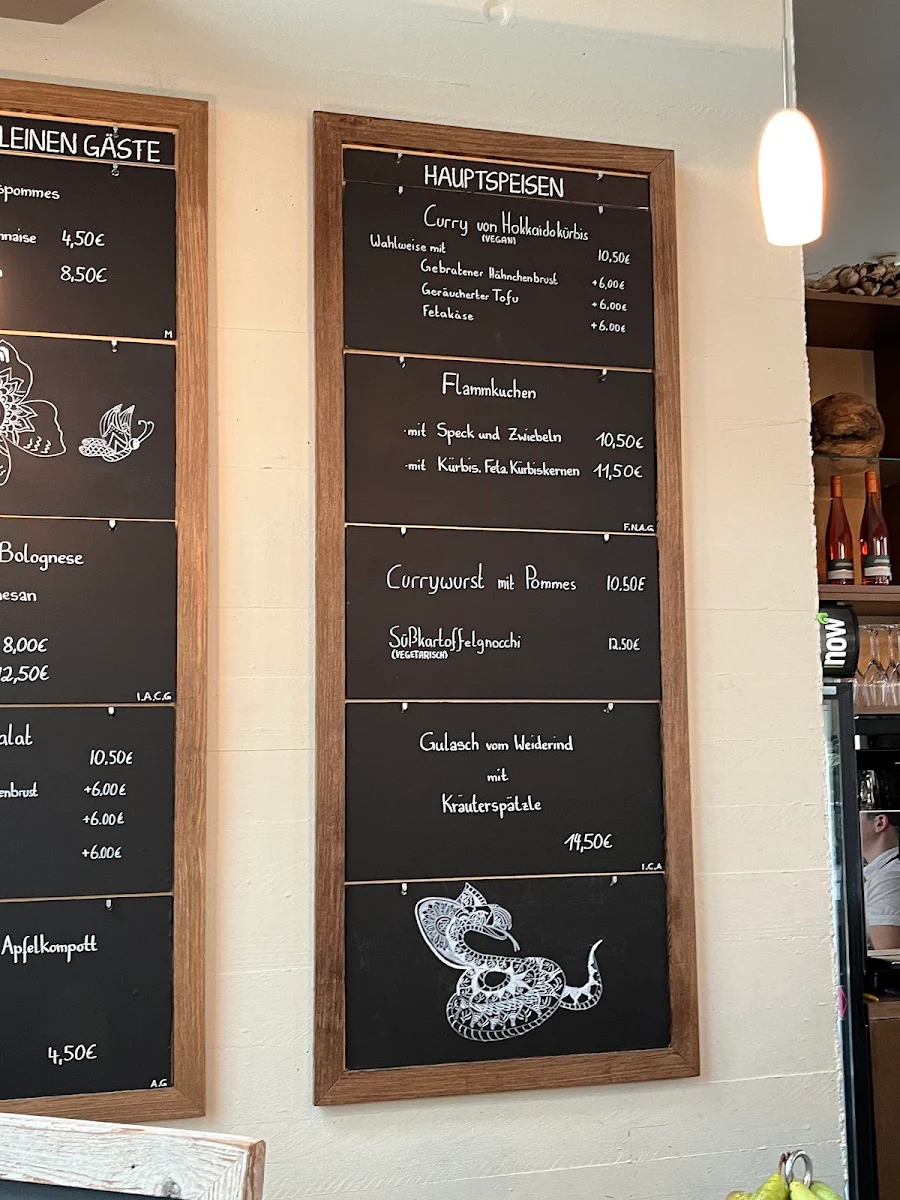 LEINEN GÄSTE
4,50€
8,50€
M
Bolognese
8,00€
12,50€
I.A.C.G
10,50€
+6.00€
+6.00€
+6.00€
Apfelkompott
4,50€
A.G
HAUPTSPEISEN
Curry von Hokkaidokürbis
(VEGAN)
10,50€
Wahlweise mit
Gebratener Hähnchenbrust +6,00€
Geräucherter Tofu +6,00€
Fetakäse +6.00€
Flammkuchen
·mit Speck und Zwiebeln 10,50€
·mit Kürbis, Feta, Kürbiskernen 11,50€
F.N.A.G
Currywurst mit Pommes 10.50€
Süßkartoffelgnocchi 12.50€
(VEGETARISCH)
Gulasch vom Weiderind
mit
Kräuterspätzle
14,50€
I.C.A
now